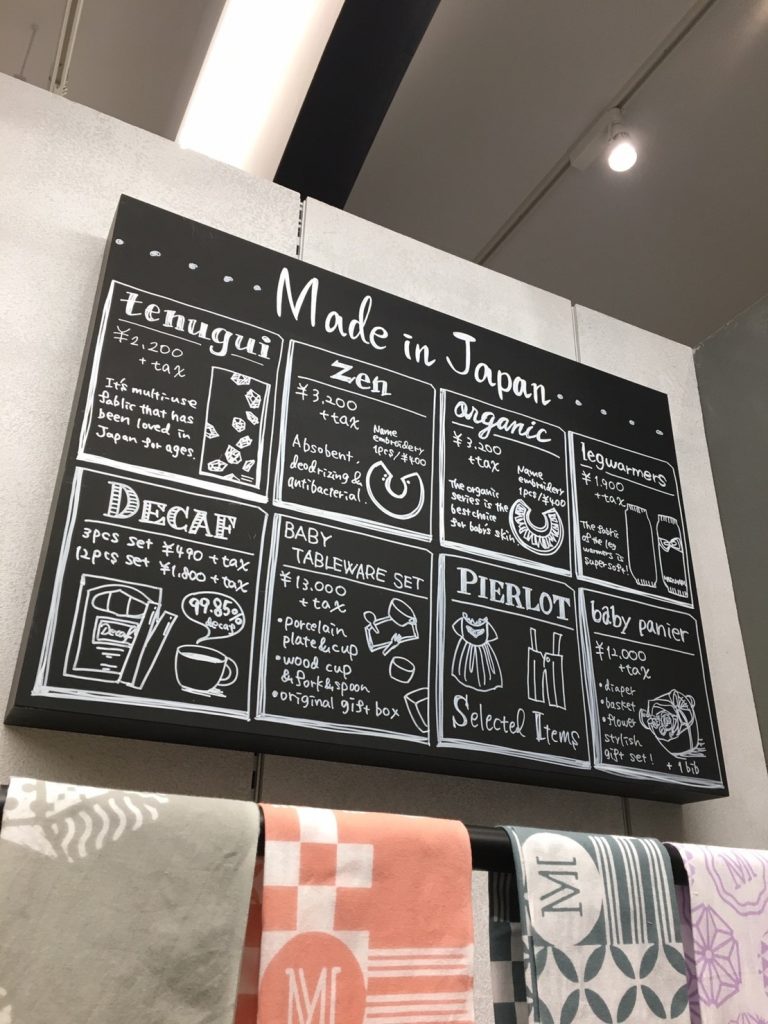 Made in Japan
tenugui
¥2,200
+ tax
It's multi-use
fablic that has
been loved in
Japan for ages.
zen
¥3,200
+ tax
Name
embroidery
1pcs/¥400
Absobent,
deodrizing &
antibacterial.
organic
¥3,200
+tax
Name
embroidery
1pcs/¥400
The organic
series is the
best choice
for baby's skin
legwarmers
¥1,900
+tax
The fablic
of the leg
warmers is
super soft!
DECAF
3pcs set ¥490 + tax
12pcs set ¥1,800 + tax
99.85%
decaf
Decaf
BABY
TABLEWARE SET
¥13,000
+ tax
• porcelain
plate & cup
• wood cup
& fork & spoon
• original gift box
PIERLOT
Selected Items
baby panier
¥12,000
+tax
• diaper
• basket
• flower
stylish
gift set!
+ 1 bib
M
M
M